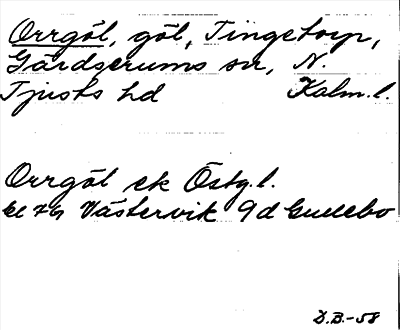 Orrgöl, göl, Tingetorp,
Gärdserums sn, N.
Tjusts hd Kalm.l.
Orrgöl ek Östg.l.
bl 76 Västervik 9d Gullebo
D.B.-58